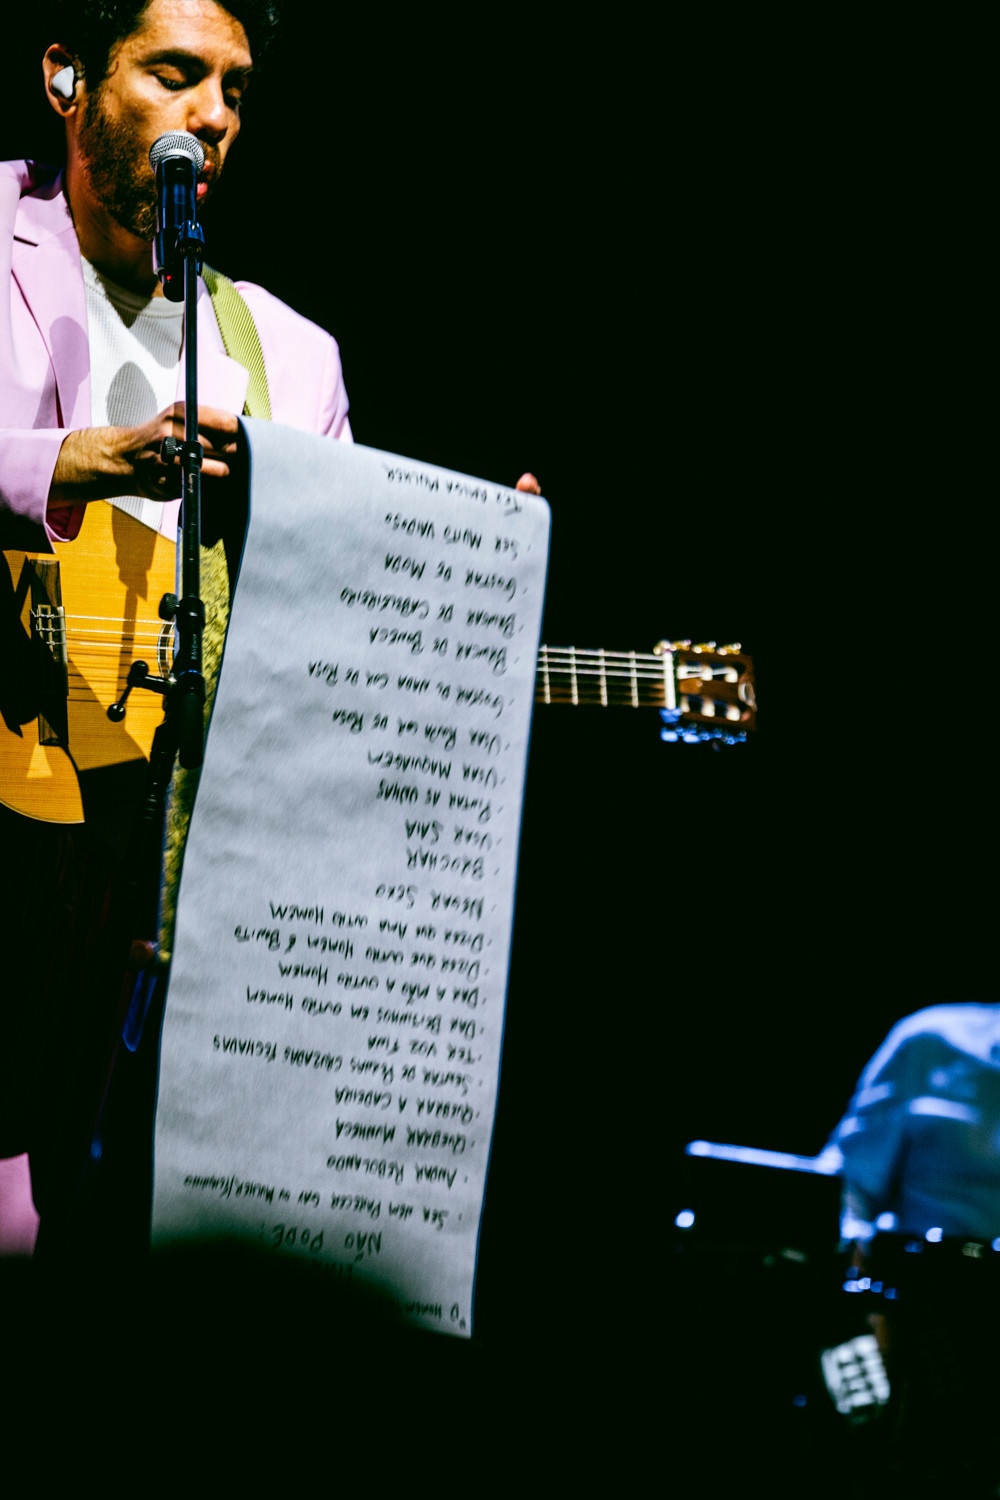 "O HOMEM
NÃO PODE:
· SER NEM PARECER GAY OU MULHER/FEMININO
· ANDAR REBOLANDO
· QUEBRAR MUNHECA
· QUEBRAR A CADEIRA
· SENTAR DE PERNAS CRUZADAS FECHADAS
· TER VOZ FINA
· DAR BEIJINHOS EM OUTRO HOMEM
· DAR A MÃO A OUTRO HOMEM
· DIZER QUE OUTRO HOMEM É BONITO
· DIZER QUE AMA OUTRO HOMEM
· NEGAR SEXO
· BROCHAR
· USAR SAIA
· PINTAR AS UNHAS
· USAR MAQUIAGEM
· USAR ROUPA COR DE ROSA
· GOSTAR DE NADA COR DE ROSA
· BRINCAR DE BONECA
· BRINCAR DE CABELEIREIRO
· GOSTAR DE MODA
· SER MUITO VAIDOSO
· TER AMIGA MULHER